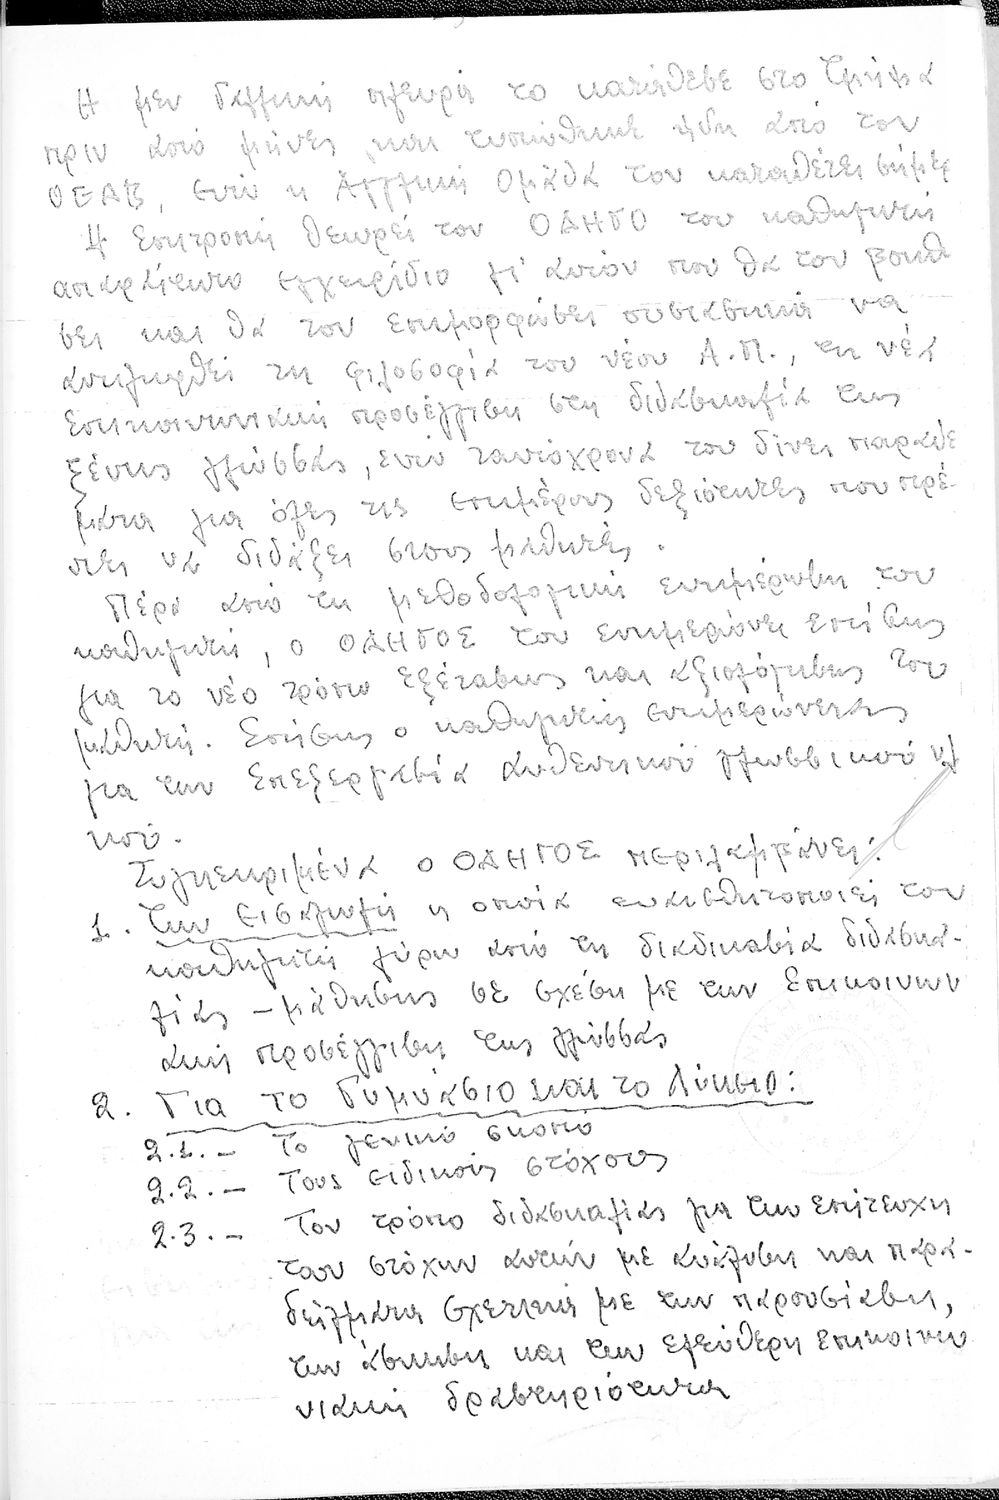 Η μεν Γαλλική πλευρά το κατάθεσε στο Τμήμα
πριν από μήνες και τυπώθηκε ήδη από τον
ΟΕΔΒ, ενώ η Αγγλική Ομάδα τον καταθέτει σήμερ
Η Επιτροπή θεωρεί τον ΟΔΗΓΟ του καθηγητή
απαραίτητο εγχειρίδιο γι' αυτόν που θα τον βοηθ
σει και θα τον επιμορφώσει ουσιαστικά να
αντιληφθεί τη φιλοσοφία του νέου Α.Π., τη νέα
επικοινωνιακή προσέγγιση στη διδασκαλία της
ξένης γλώσσας, ενώ ταυτόχρονα του δίνει παραδε
ματα για όλες τις επιμέρους δεξιότητες που πρέ-
πει να διδάξει στους μαθητές.
Πέρα από τη μεθοδολογική ενημέρωση του
καθηγητή, ο ΟΔΗΓΟΣ τον ενημερώνει επίσης
για το νέο τρόπο εξέτασης και αξιολόγησης του
μαθητή. Επίσης ο καθηγητής ενημερώνεται
για την επεξεργασία αυθεντικού γλωσσικού υλ
κού.
Συγκεκριμένα ο ΟΔΗΓΟΣ περιλαμβάνει:
1. Την Εισαγωγή η οποία ευαισθητοποιεί τον
καθηγητή γύρω από τη διαδικασία διδασκα-
λίας - μάθησης σε σχέση με την επικοινων
ακή προσέγγιση της γλώσσας
2. Για το Γυμνάσιο και το Λύκειο:
2.1. - Το γενικό σκοπό
2.2. - Τους ειδικούς στόχους
2.3. - Τον τρόπο διδασκαλίας για την επίτευχη
των στόχων αυτών με ανάλυση και παρα-
δείγματα σχετικά με την παρουσίαση,
την άσκηση και την ελεύθερη επικοινω
νιακή δραστηριότητα